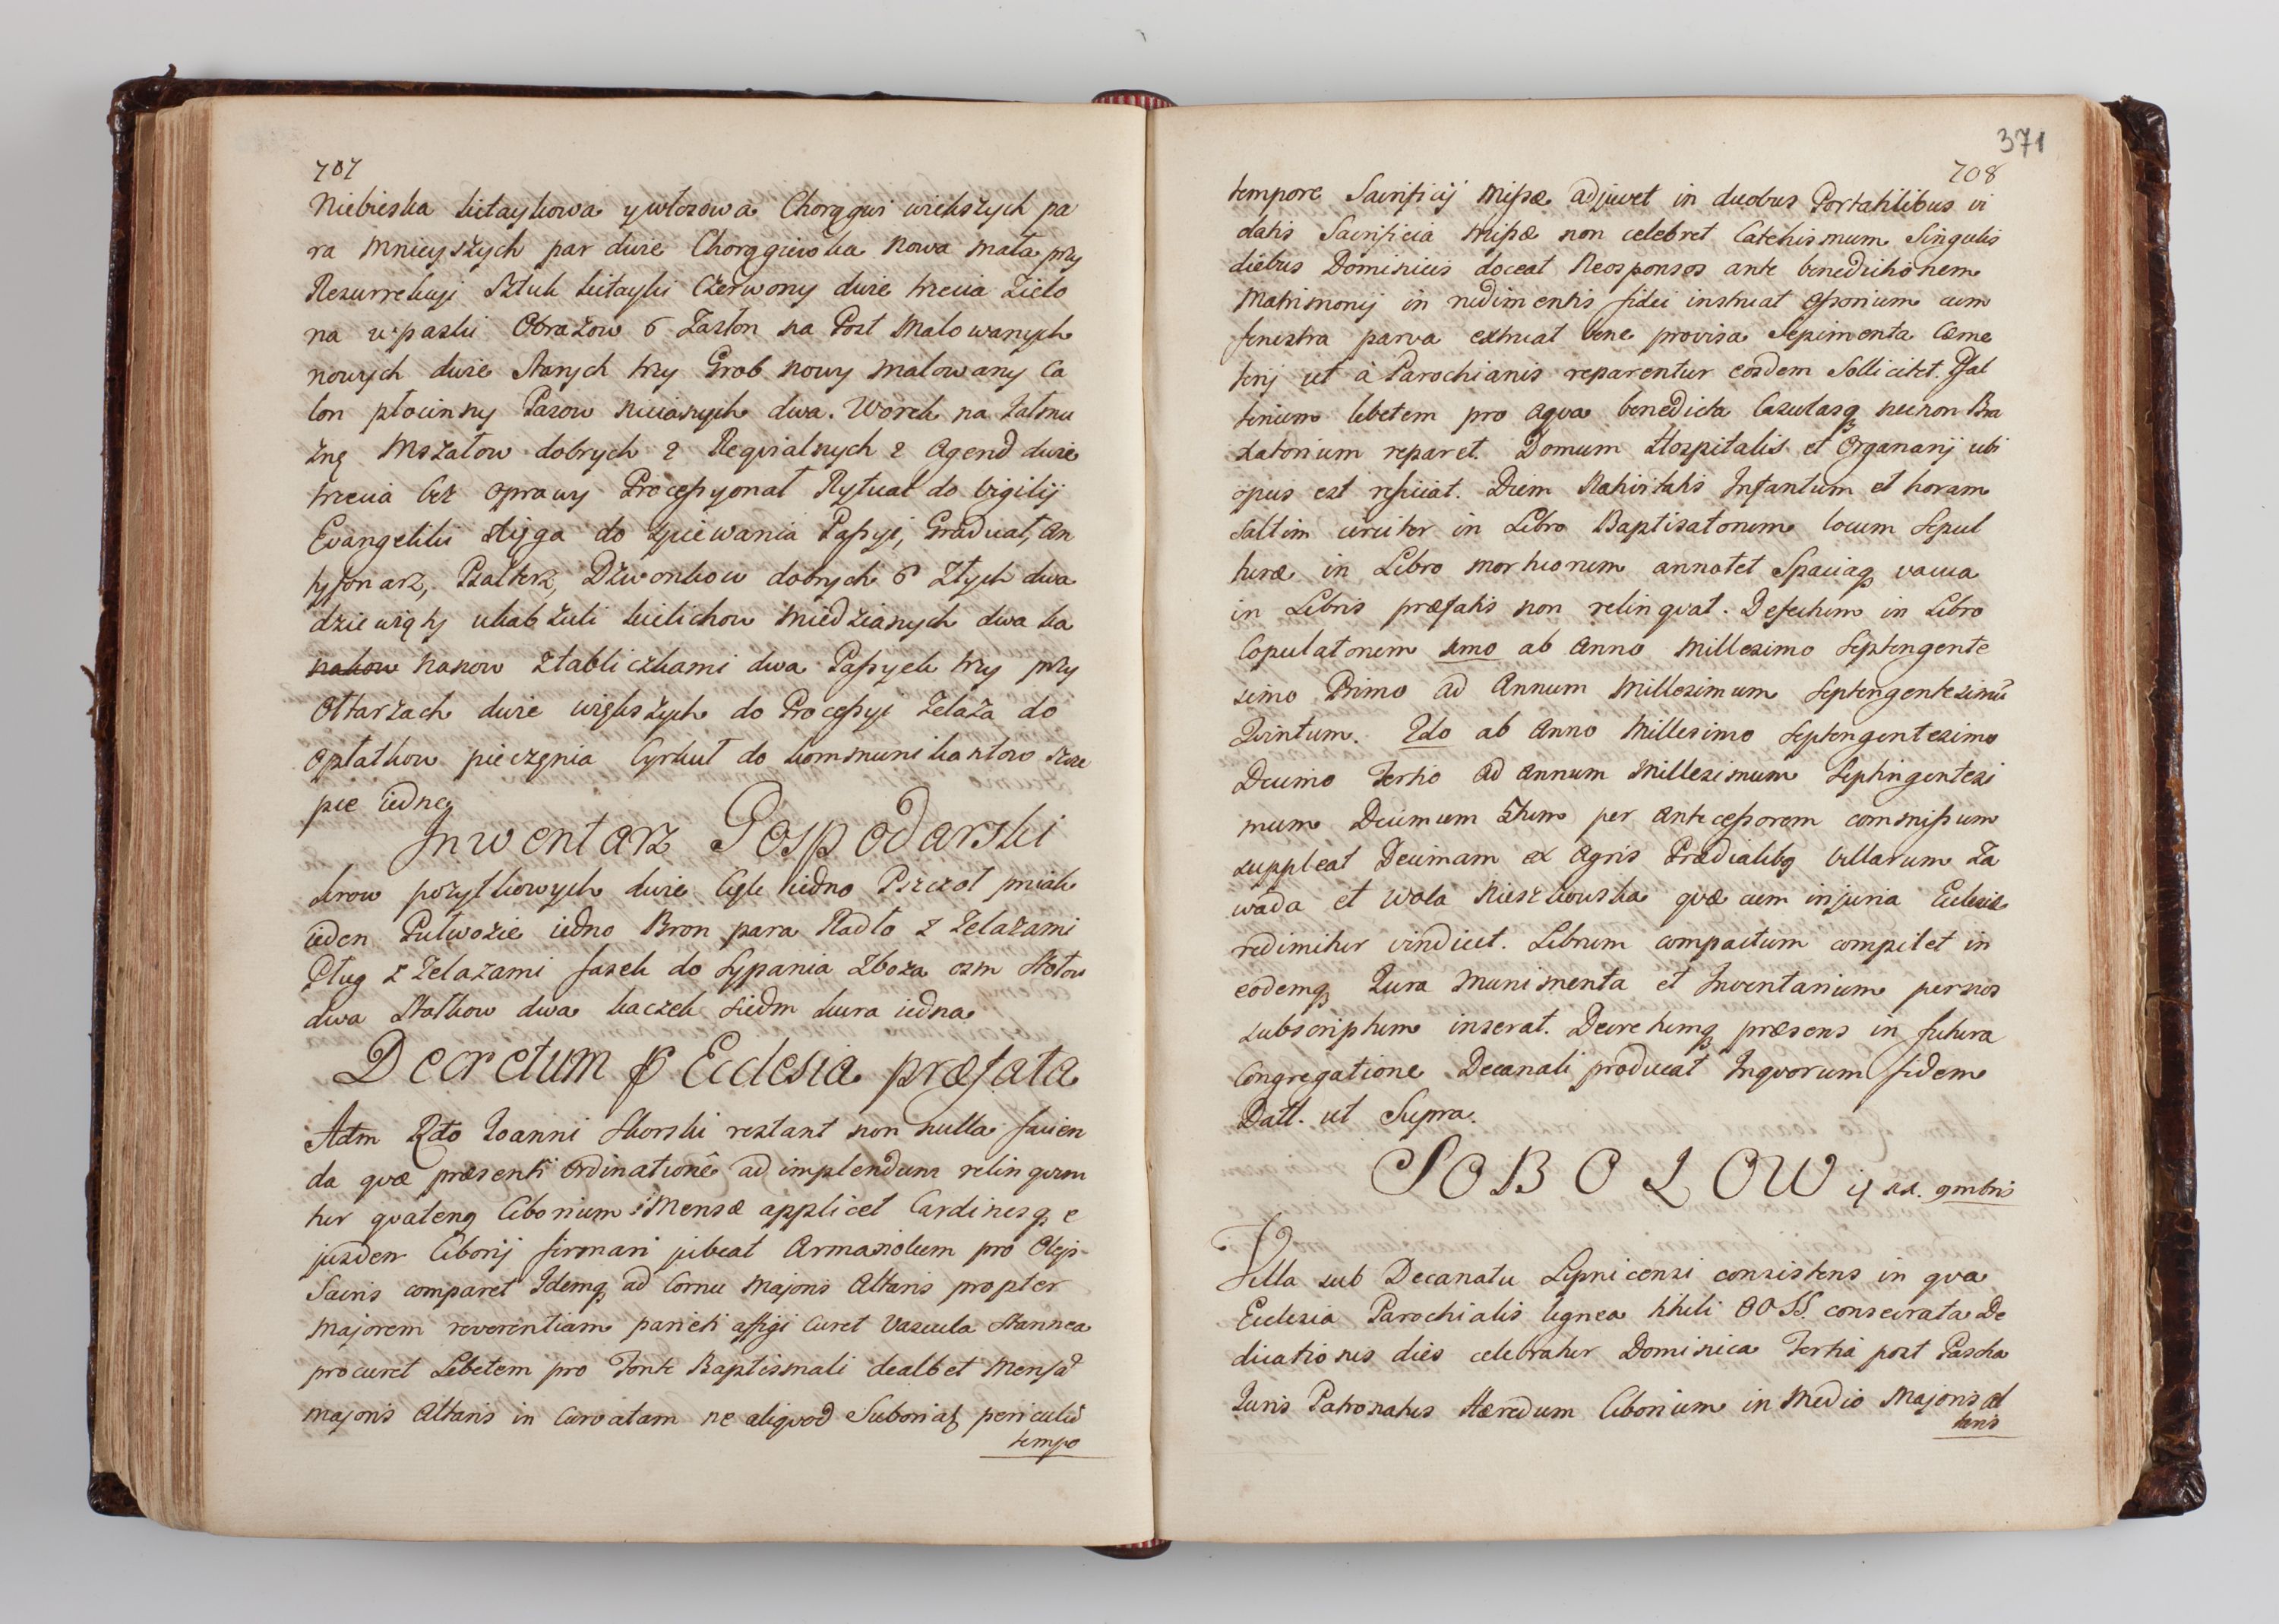 707
Niebieska kitaykowa y włosowa Chorągwi wiekszych pa
ra mnieyszych par dwie Chorągiewka nowa mała przy
Resurrekcyi Sztuk kitayki Czerwony dwie trzecia Zielo
na w paski Obrazow 6 Zasłon na Post Malowanych
nowych dwie starych trzy Grob nowy malowany Ca
lon płocinny Pasow nicianych dwa. Worek na Jałmu
żnę Mszałow dobrych 2 Reqvialnych 2 Agend dwie
trzecia bez oprawy Processyonał Rytuał do Vigilij
Evangeliki xięga do spiewania Passyi, Graduał, An
tyfonarz, Psałterz, Dzwonkow dobrych 6 złych dwa
dziewiąty u kabzuli kielichow miedzianych dwa ka
nakow nanow z tabliczkami dwa Passyek trzy przy
Ołtarzach dwie większych do Processyi żelaza do
opłatkow pieczęnia Cyrkuł do kommunikantow
pie iedne
Inwentarz Gospodarski
krow pozytkowych dwie Cięle iedno Pszczoł pniak
ieden Putwozie iedno Bron para Radło z Zelazami
Pług z Zelazami fasek do sypania Zboza osm Stołow
dwa Stołkow dwa kaczek siedm kura iedna
Decretum p Ecclesia præfata
Adm Rdo Joanni Skorski restant non nulla facien
da qvæ præsenti Ordinatione adimplendum relinqvun
tur qvatenq Cibonium Mensæ applicet Cardinesq e
jusdem Ciborij firmari jubeat Armariolum pro Oleis
Sacris comparet Idemq ad Cornu Majoris Altaris propter
majorem reverentiam parieti affigi curet Vascula stannea
procuret Lebetem pro Fonte Baptismali dealbet Mensã
majoris Altaris in Curvatam ne aliqvod Suboriat periculũ
tempo
371
708
tempore Sacrificij Missæ adjuvet in duobus Portatilibus vi
olatis Sacrificia Missæ non celebret Catechismum Singulis
diebus Dominicis doceat Neosponsos ante benedictionem
Matrimonij in rudimentis fidei instruat Ossorium cum
fenestra parva extruat bene provisa Sepimenta Cæme
terij ut à Parochianis reparentur eosdem Sollicitet. Psal
terium lebetem pro aqva benedicta Casulasq necnon Bra
datorium reparet. Domum Hospitalis et Organarij ubi
opus est reficiat. Diem Nativitatis Infantum et horam
saltim circiter in Libro Baptisatorum locum Sepul
turæ in Libro mortuorum annotet Spaciaq vacua
in Libris præfatis non relinqvat. Defectum in Libro
Copulatorum 1mo ab Anno Millesimo Septengente
simo Primo ad Annum Millesimum Septengentesimũ
Qvintum. 2do ab Anno Millesimo Septengentesimo
Decimo Tertio ad Annum Millesimum Septingentesi
mum Decimum 5tum per antecessorem commissum
suppleat Decimam ex Agris Prædialibq Villarum Za
wada et Wola Nieszkowska qvæ cum injuria Eclesiæ
redimitur vindicet. Librum compactum compilet in
eodemq Jura Munimenta et Inventarium per nos
subscriptum inserat. Decretumq præsens in futura
Congregatione Decanali producat Inqvorum fidem
Datt. ut Supra.
SOBOLOW ij xx. 9mbris
Villa sub Decanatu Lipnicensi consistens in qva
Eclesia Parochialis lignea tituli OO SS. consecrata De
dicationis dies celebratur Dominica Tertia post Pascha
Juris Patronatus Hæredum Cibonium in Medio Majoris Al
taris